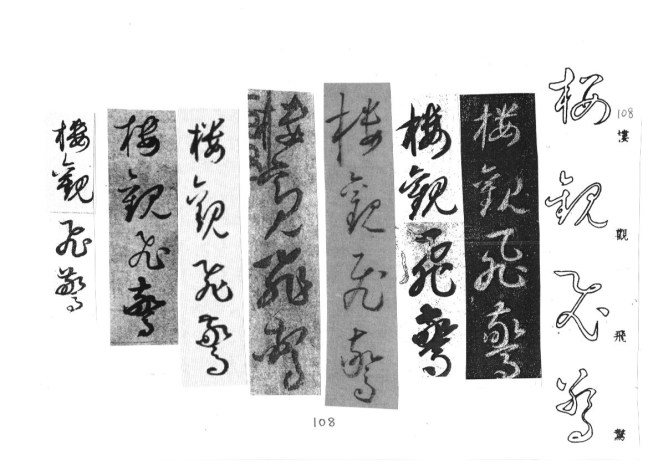 108 樓 觀 飛 驚
樓觀飛驚
樓觀飛驚
樓觀飛驚
樓觀飛驚
樓觀飛驚
樓觀飛驚
樓觀飛驚
樓觀飛驚
108